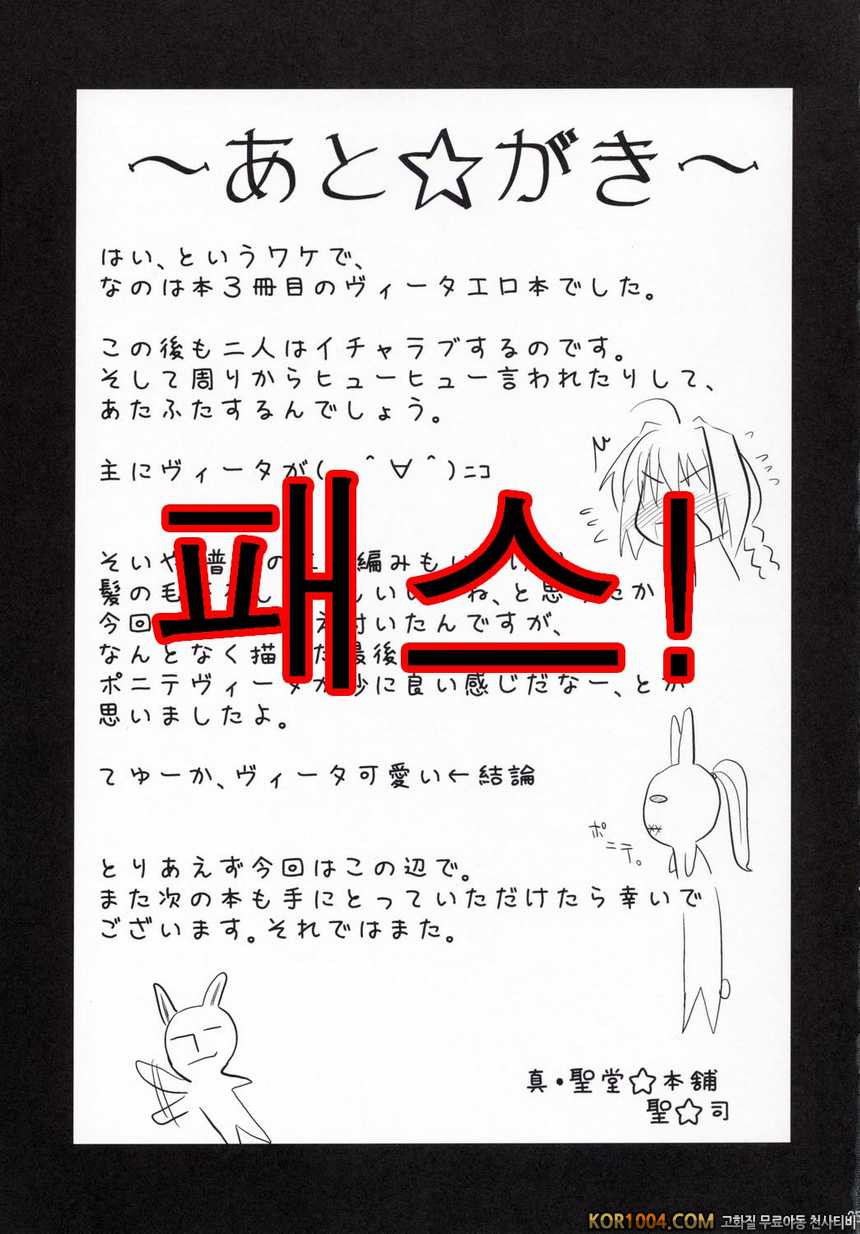 ～あと☆がき～
はい、というワケで、
なのは本3冊目のヴィータエロ本でした。
この後も二人はイチャラブするのです。
そして周りからヒューヒュー言われたりして、
あたふたするんでしょう。
主にヴィータが( ＾∀＾)ニコ
패스!
そいや普の編みもい
髪の毛しいいね、と思ったか
今回え付いたんですが、
なんとなく描た最後
ポニテヴィータが妙に良い感じだなー、とか
思いましたよ。
てゆーか、ヴィータ可愛い←結論
ポニテ。
とりあえず今回はこの辺で。
また次の本も手にとっていただけたら幸いで
ございます。それではまた。
真・聖堂☆本舗
聖☆司
KOR1004.COM 고화질 무료야동 천사티비